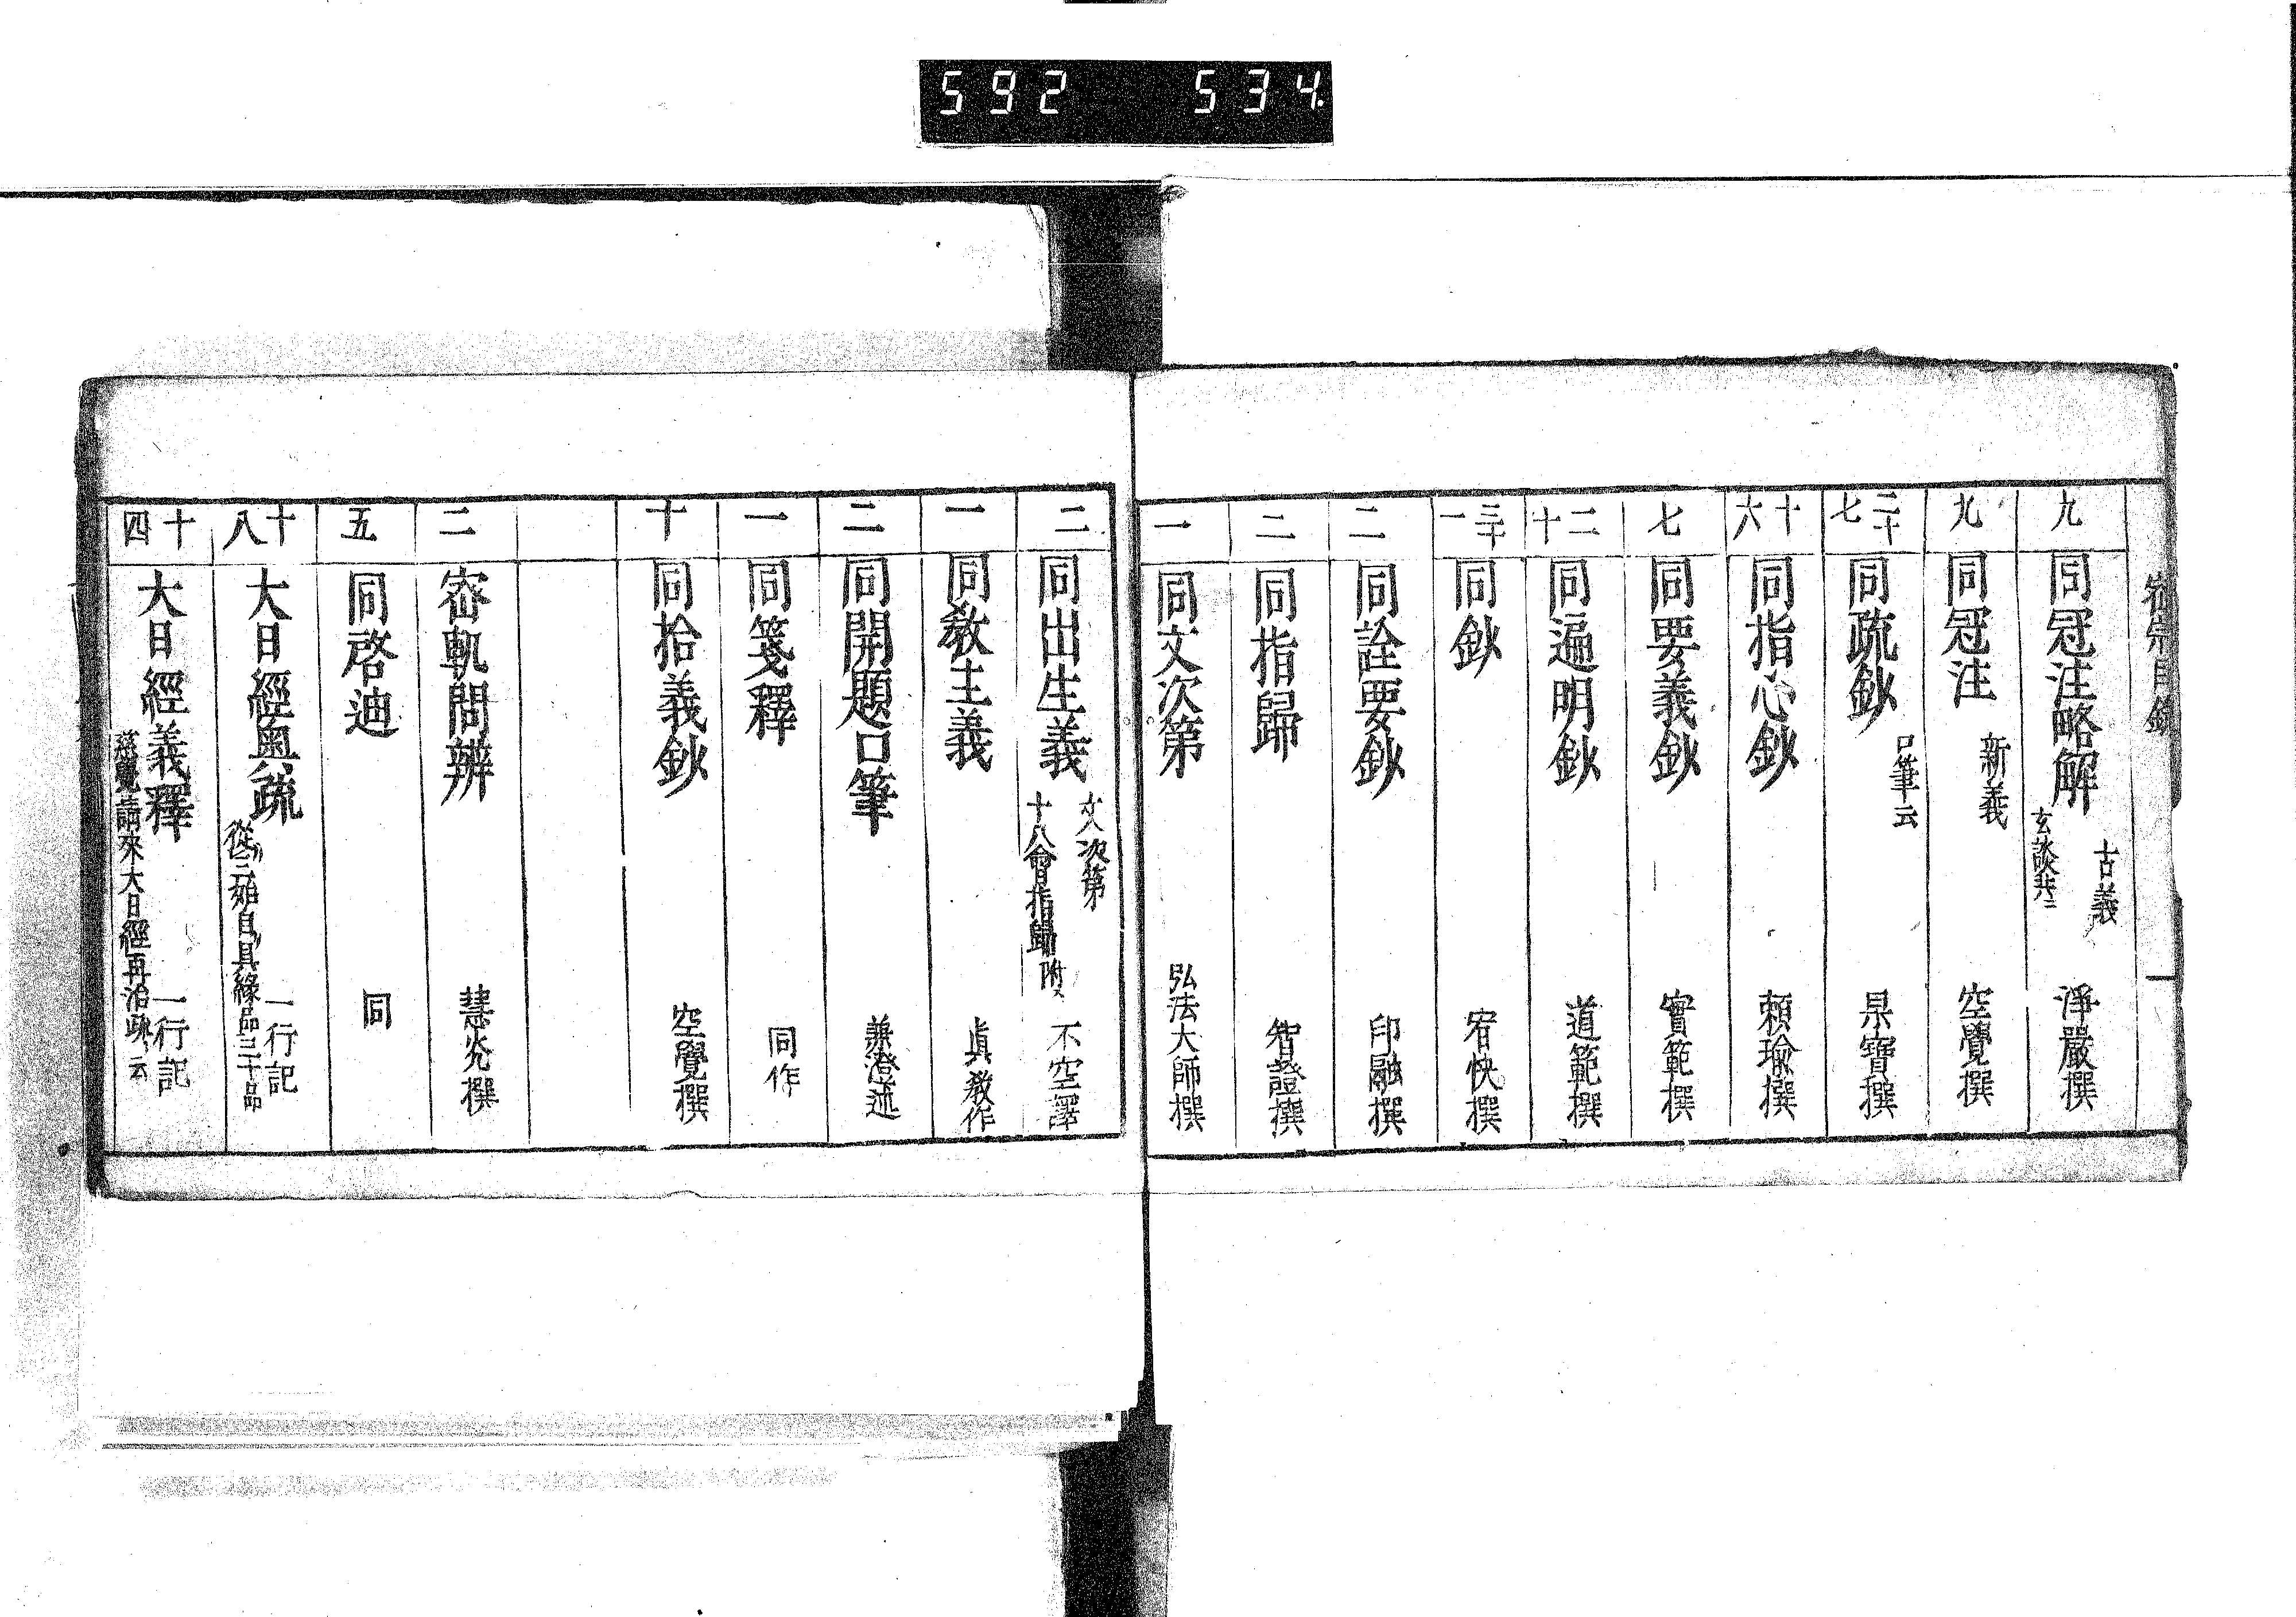 592 534
密宗目錄
九 同冠注略解 古義 玄談共二 淨嚴撰
九 同冠注 新義 空覺撰
二十七 同疏鈔 口筆云 杲寶撰
十六 同指心鈔 賴瑜撰
七 同要義鈔 實範撰
二十 同遍明鈔 道範撰
三十一 同鈔 宥快撰
二 同詮要鈔 印融撰
二 同指歸 智證撰
一 同文次第 弘法大師撰
二 同出生義 文次第 十八會指歸附 不空譯
一 同教主義 眞教作
二 同開題口筆 兼澄述
一 同箋釋 同作
十 同拾義鈔 空覺撰
二 密軌問辨 慧光撰
五 同啓迪 同
十八 大日經奥疏 一行記
十四 大日經義釋 慈覺請來大日經再治疏云 一行記